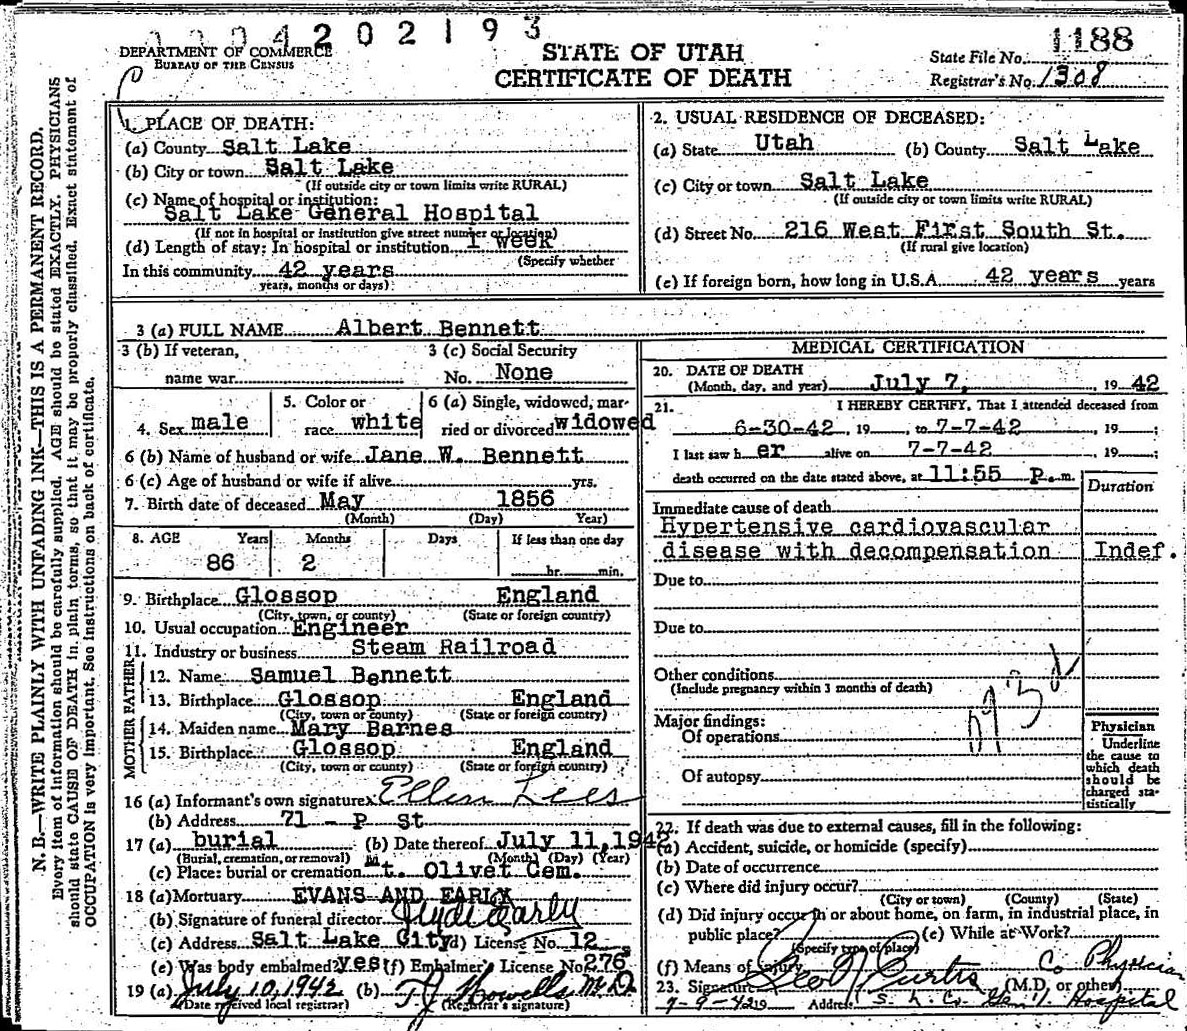 2204202193
DEPARTMENT OF COMMERCE
BUREAU OF THE CENSUS
STATE OF UTAH
CERTIFICATE OF DEATH
State File No. 1188
Registrar's No. 1308
N. B.—WRITE PLAINLY WITH UNFADING INK—THIS IS A PERMANENT RECORD.
Every item of information should be carefully supplied. AGE should be stated EXACTLY. PHYSICIANS
should state CAUSE OF DEATH in plain terms, so that it may be properly classified. Exact statement of
OCCUPATION is very important. See instructions on back of certificate.
1. PLACE OF DEATH:
(a) County Salt Lake
(b) City or town Salt Lake
(If outside city or town limits write RURAL)
(c) Name of hospital or institution:
Salt Lake General Hospital
(If not in hospital or institution give street number or location)
(d) Length of stay: In hospital or institution 1 week
(Specify whether
In this community 42 years
years, months or days)
2. USUAL RESIDENCE OF DECEASED:
(a) State Utah (b) County Salt Lake
(c) City or town Salt Lake
(If outside city or town limits write RURAL)
(d) Street No. 216 West First South St.
(If rural give location)
(e) If foreign born, how long in U.S.A. 42 years years
3 (a) FULL NAME Albert Bennett
3 (b) If veteran,
name war
3 (c) Social Security
No. None
4. Sex male
5. Color or
race white
6 (a) Single, widowed, mar-
ried or divorced widowed
6 (b) Name of husband or wife Jane W. Bennett
6 (c) Age of husband or wife if alive yrs.
7. Birth date of deceased May 1856
(Month) (Day) Year)
8. AGE Years Months Days If less than one day
86 2 hr. min.
9. Birthplace Glossop England
(City, town, or county) (State or foreign country)
10. Usual occupation Engineer
11. Industry or business Steam Railroad
FATHER
12. Name Samuel Bennett
13. Birthplace Glossop England
(City, town or county) (State or foreign country)
MOTHER
14. Maiden name Mary Barnes
15. Birthplace Glossop England
(City, town or county) (State or foreign country)
16 (a) Informant's own signature x Ellen Lees
(b) Address 71 - P St
17 (a) burial (b) Date thereof July 11, 1942
(Burial, cremation, or removal) (Month) (Day) (Year)
(c) Place: burial or cremation Mt. Olivet Cem.
18 (a) Mortuary EVANS AND EARLY
(b) Signature of funeral director Clyde Early
(c) Address Salt Lake City (d) License No. 12
(e) Was body embalmed? yes (f) Embalmer's License No. 276
19 (a) July 10, 1942 (b) T J Howells M.D.
(Date received local registrar) (Registrar's signature)
MEDICAL CERTIFICATION
20. DATE OF DEATH
(Month, day, and year) July 7, , 19 42
21. I HEREBY CERTIFY, That I attended deceased from
6-30-42 , 19 , to 7-7-42 , 19 ;
I last saw h er alive on 7-7-42 , 19 ;
death occurred on the date stated above, at 11:55 P. m.
Duration
Immediate cause of death
Hypertensive cardiovascular
disease with decompensation Indef.
Due to
Due to
Other conditions
(Include pregnancy within 3 months of death)
Major findings:
Of operations
Of autopsy
Physician
Underline
the cause to
which death
should be
charged sta-
tistically
22. If death was due to external causes, fill in the following:
(a) Accident, suicide, or homicide (specify)
(b) Date of occurrence
(c) Where did injury occur?
(City or town) (County) (State)
(d) Did injury occur in or about home, on farm, in industrial place, in
public place? (e) While at Work?
(Specify type of place)
(f) Means of injury
23. Signature Geo N Curtis Co Physician
(M.D. or other)
7-9-42 19 Address S. L. Co. Gen'l. Hospital